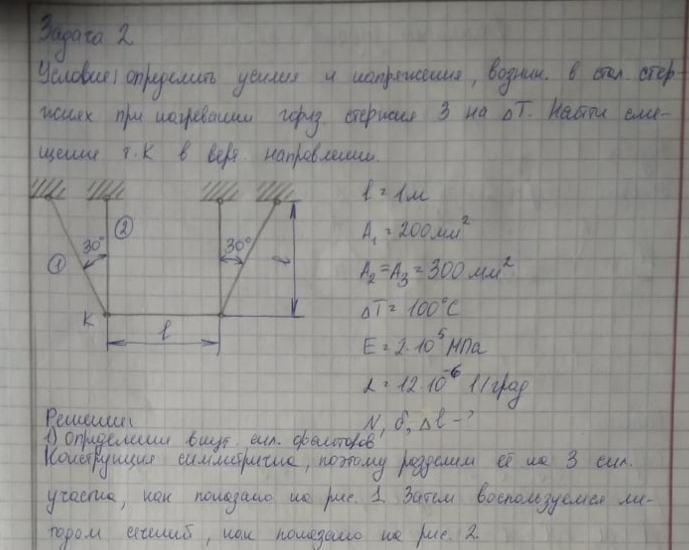 Задача 2
Условие: определить усилия и напряжения, возник. в стал. стер-
жнях при нагревании гориз. стержня 3 на ΔT. Найти сме-
щение т. К в верт. направлении.
l = 1м
A₁ = 200 мм²
① 30° ② 30° l
A₂ = A₃ = 300 мм²
ΔT = 100°C
K
E = 2·10⁵ МПа
l
α = 12·10⁻⁶ 1/град
Решение: N, σ, Δl - ?
1) Определим внут. сил. факторов
Конструкция симметрична, поэтому разделим её на 3 сил.
участка, как показано на рис. 1. Затем воспользуемся ме-
тодом сечений, как показано на рис. 2